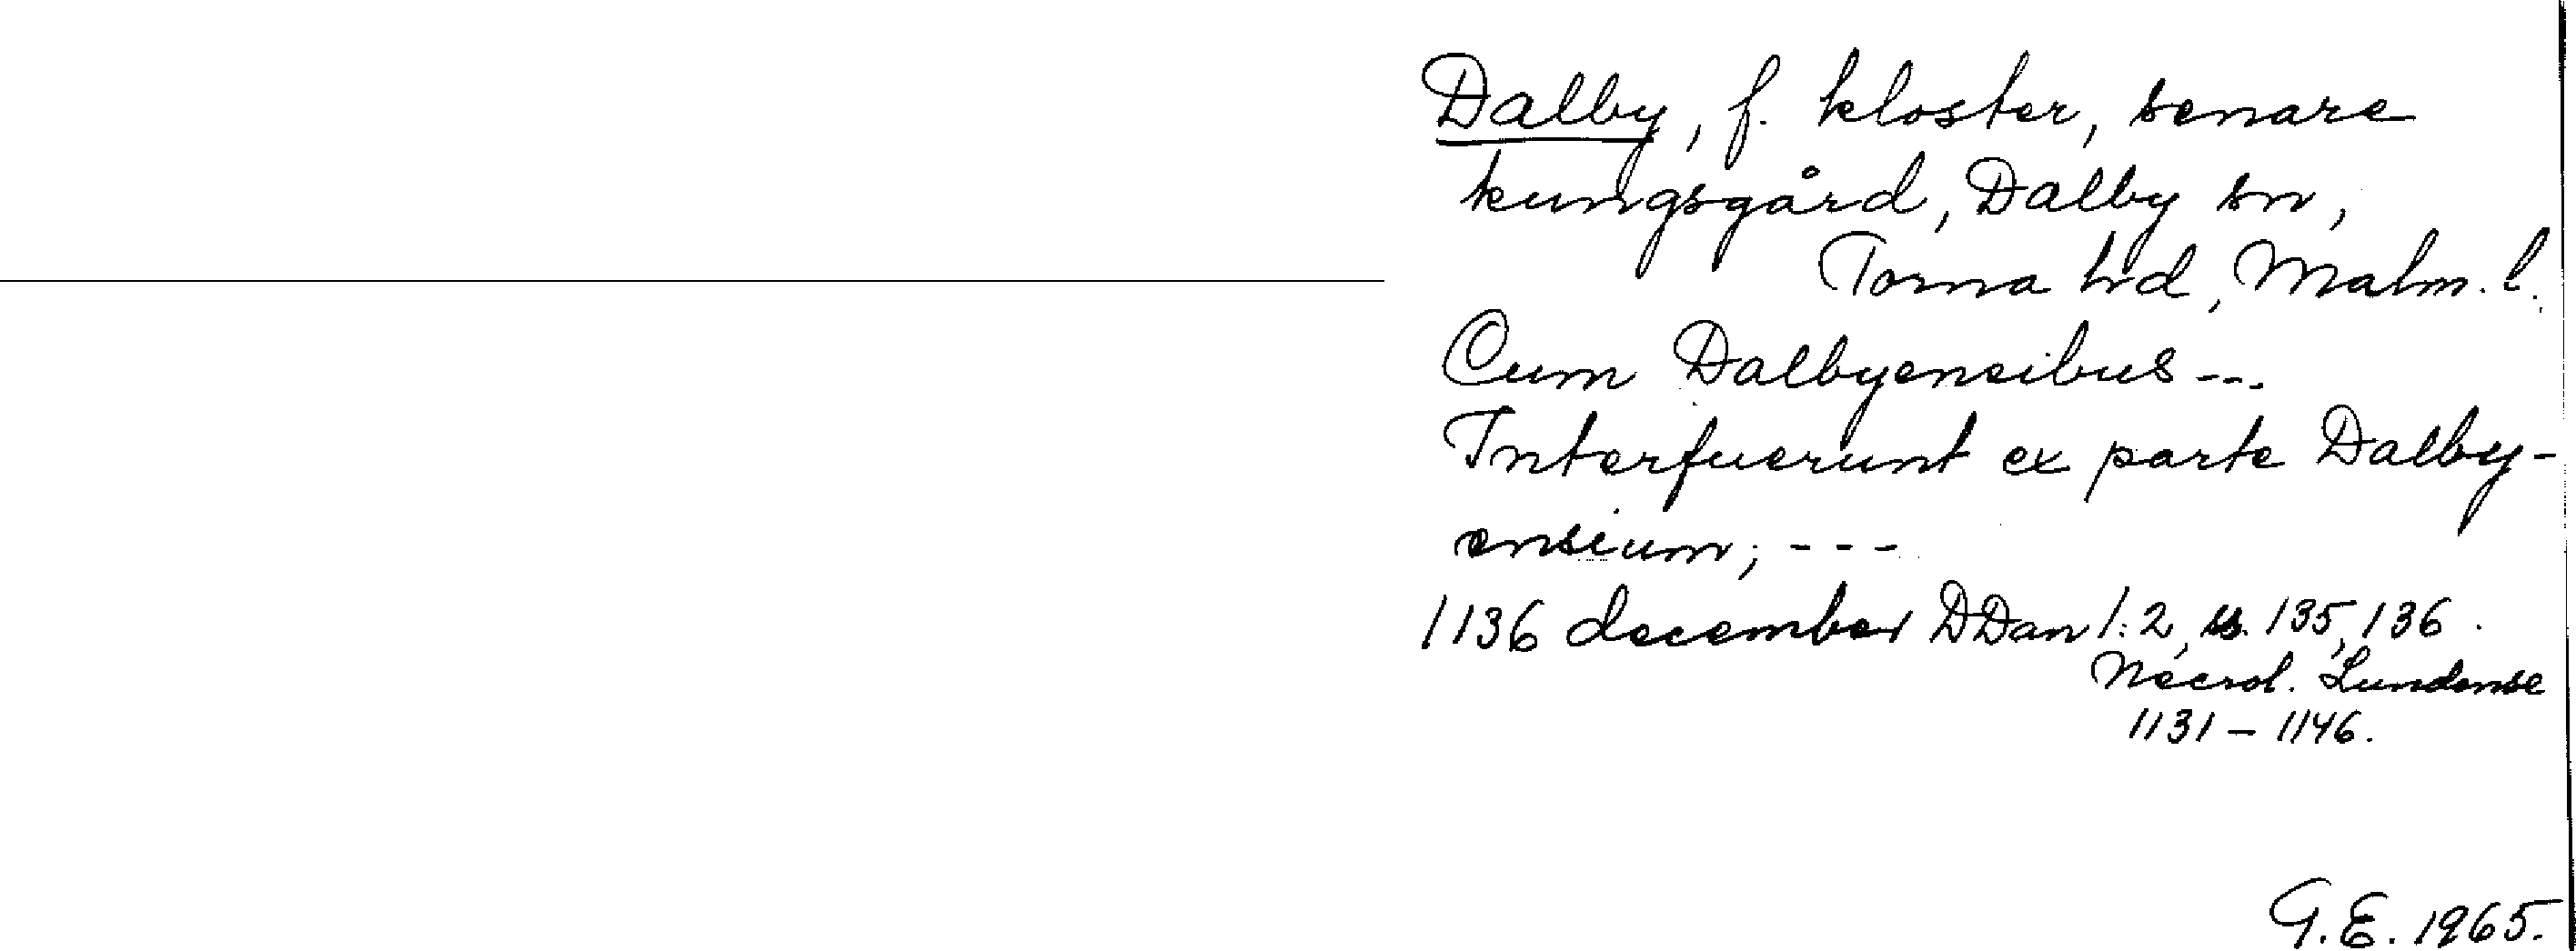 Dalby, f. kloster, senare
kungsgård, Dalby sn,
Torna hd, Malm. l.
Cum Dalbyensibus ---
Interfuerunt ex parte Dalby-
ensium; ---
1136 december DDan 1:2, ss. 135, 136.
Necrol. Lundense
1131 - 1146.
G.E. 1965.